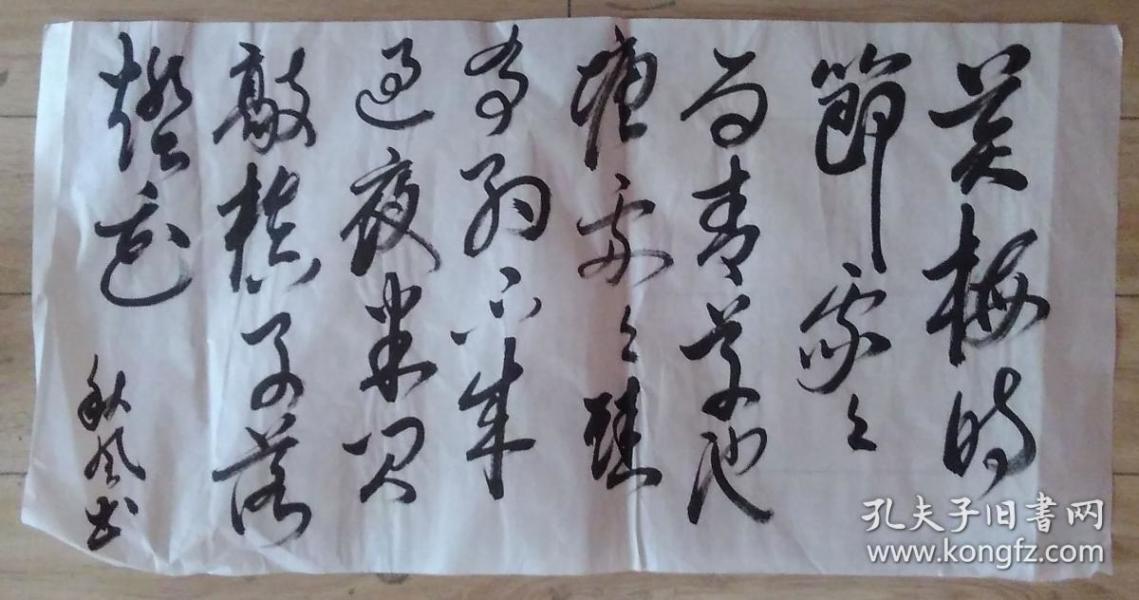 黄梅时
節家々
雨青草池
塘處々蛙
有約不来
過夜半閑
敲棋子落
燈花
秋风书
孔夫子旧書网
www.kongfz.com